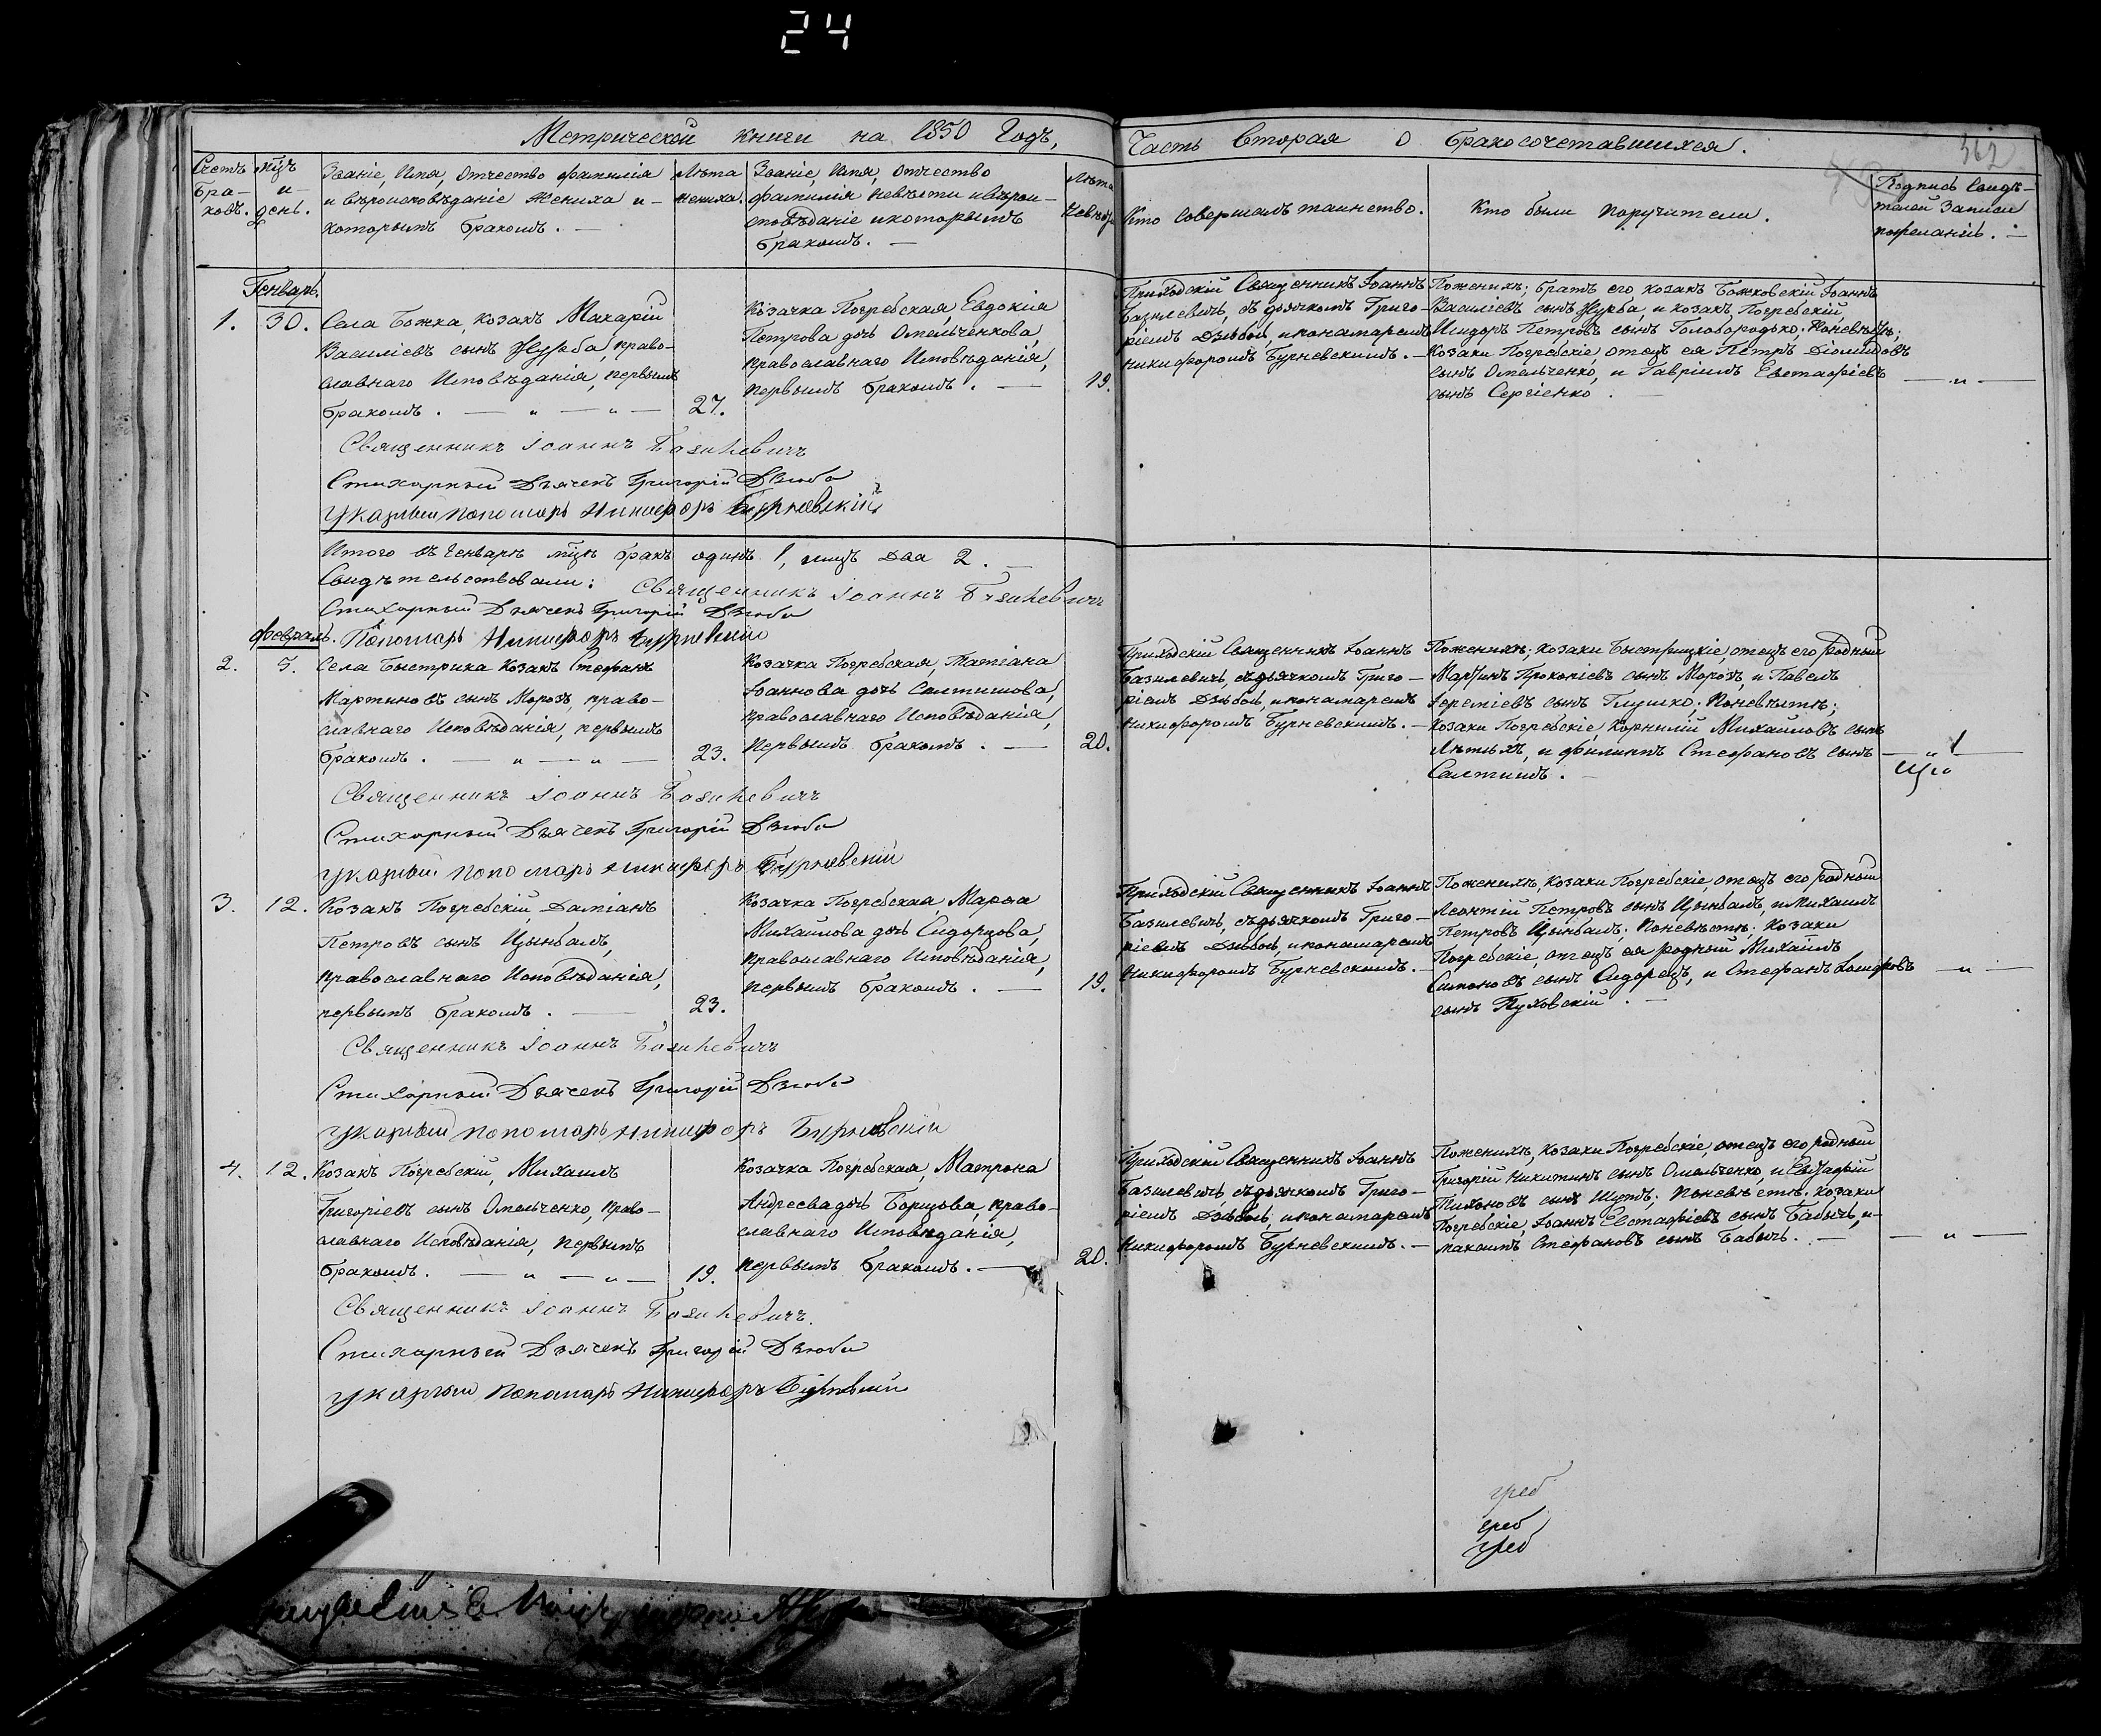 24
Метрической книги на 1850 Годъ,
Счетъ бра-ковъ.
мц̃ъ и день.
Званіе, Имя, Отчество фамилія
и вѣроисповѣданіе Жениха и-
которымъ бракомъ. —
Лѣта
жениха.
Званіе, Имя, Отчество
фамилія невѣсти и вѣрои-
сповѣданіе и которымъ
бракомъ. —
Лѣта
невѣсты
Генварь.
1. 30.
Села Божка, козакъ Макарій
Василіевъ сынъ Журба, право-
славнаго Исповѣданія, первымъ
бракомъ. — " — " — 27.
Козачка Погребская, Евдокія
Петрова дочь Омельченкова,
православнаго Исповѣданія,
первымъ бракомъ. — 19.
Священникъ Іоаннъ Базилевичъ
Стихарный Дьячекъ Григорій Дзюба
Указный Пономарь Никифоръ Бурневскій
Итого въ Генварѣ мц̃ѣ бракъ одинъ 1, лицъ два 2. —
Свидѣтельствовали: Священникъ Іоаннъ Базилевичъ
Стихарный Дьячекъ Григорій Дзюба
Февраль. Пономарь Никифоръ Бурневскій
2. 5.
Села Быстрика Козакъ Стефанъ
Мартиновъ сынъ Морозъ, право-
славнаго Исповѣданія, первымъ
бракомъ. — " — " — 23.
Козачка Погребская, Татіана
Іоаннова дочь Салтишова,
православнаго Исповѣданія,
первымъ бракомъ. — 20.
Священникъ Іоаннъ Базилевичъ
Стихарный Дьячекъ Григорій Дзюба
указный Пономарь Никифоръ Бурневскій
3. 12.
Козакъ Погребскій Даміанъ
Петровъ сынъ Цымбалъ,
православнаго Исповѣданія,
первымъ бракомъ. — 23.
Козачка Погребская, Марѳа
Михаилова дочь Сидорцова,
православнаго Исповѣданія,
первымъ бракомъ. — 19.
Священникъ Іоаннъ Базилевичъ
Стихарный Дьячекъ Григорій Дзюба
указный пономарь Никифоръ Бурневскій
4. 12.
Козакъ Погребскій, Михаилъ
Григоріевъ сынъ Омельченко, право-
славнаго Исповѣданія, первымъ
бракомъ. — " — " — 19.
Козачка Погребская, Матрона
Андреева дочь Борцова, право-
славнаго Исповѣданія,
первымъ бракомъ. — 20.
Священникъ Іоаннъ Базилевичъ.
Стихарный Дьячекъ Григорій Дзюба
указный Пономарь Никифоръ Бурневскій
Часть Вторая о Бракосочетавшихся.
362
Кто совершалъ таинство.
Кто были поручители.
Подпись Свидѣ-
телей Записи
по желанію. —
Приходскій Священникъ Іоаннъ
Базилевичъ, съ дьячкомъ Григо-
ріемъ Дзюбой, и пономаремъ
Никифоромъ Бурневскимъ. —
По женихѣ; братъ его козакъ Божковскій Іоаннъ
Василіевъ сынъ Журба, и козакъ Погребскій,
Исидоръ Петровъ сынъ Голобородько; По невѣстѣ;
Козаки Погребскіе отецъ ея Петръ Діомидовъ
сынъ Омельченко, и Гавріилъ Евстафіевъ
сынъ Сергіенко. —
— " —
Приходскій Священникъ Іоаннъ
Базилевичъ, съ дьячкомъ Григо-
ріемъ Дзюбой, и пономаремъ
Никифоромъ Бурневскимъ. —
По женихѣ; козаки Быстрицкіе, отецъ его родный
Мартинъ Прокопіевъ сынъ Морозъ, и Павелъ
Іереміевъ сынъ Глушко; По невѣстѣ;
козаки Погребскіе, Корнилій Михаиловъ сынъ
Лѣтихъ, и Филиппъ Стефановъ сынъ
Салтишъ. —
— " —
Приходскій Священникъ Іоаннъ
Базилевичъ, съ дьячкомъ Григо-
ріемъ Дзюбой, и пономаремъ
Никифоромъ Бурневскимъ. —
По женихѣ, козаки Погребскіе отецъ его родный
Леонтій Петровъ сынъ Цымбалъ, и Михаилъ
Петровъ Цымбалъ; По невѣстѣ; Козаки
Погребскіе, отецъ ея родный Михаилъ
Симоновъ сынъ Сидорецъ, и Стефанъ Іосифовъ
сынъ Пуховскій. —
— " —
Приходскій Священникъ Іоаннъ
Базилевичъ, съ дьячкомъ Григо-
ріемъ Дзюбой, и пономаремъ
Никифоромъ Бурневскимъ. —
По женихѣ, Козаки Погребскіе, отецъ его родный
Григорій Никитинъ сынъ Омельченко, и Евстафій
Тихоновъ сынъ Шутъ; По невѣстѣ, козаки
Погребскіе, Іоаннъ Евстафіевъ сынъ Бабычъ, и-
Максимъ Стефановъ сынъ Бабычъ. —
— " —
греб
греб
греб